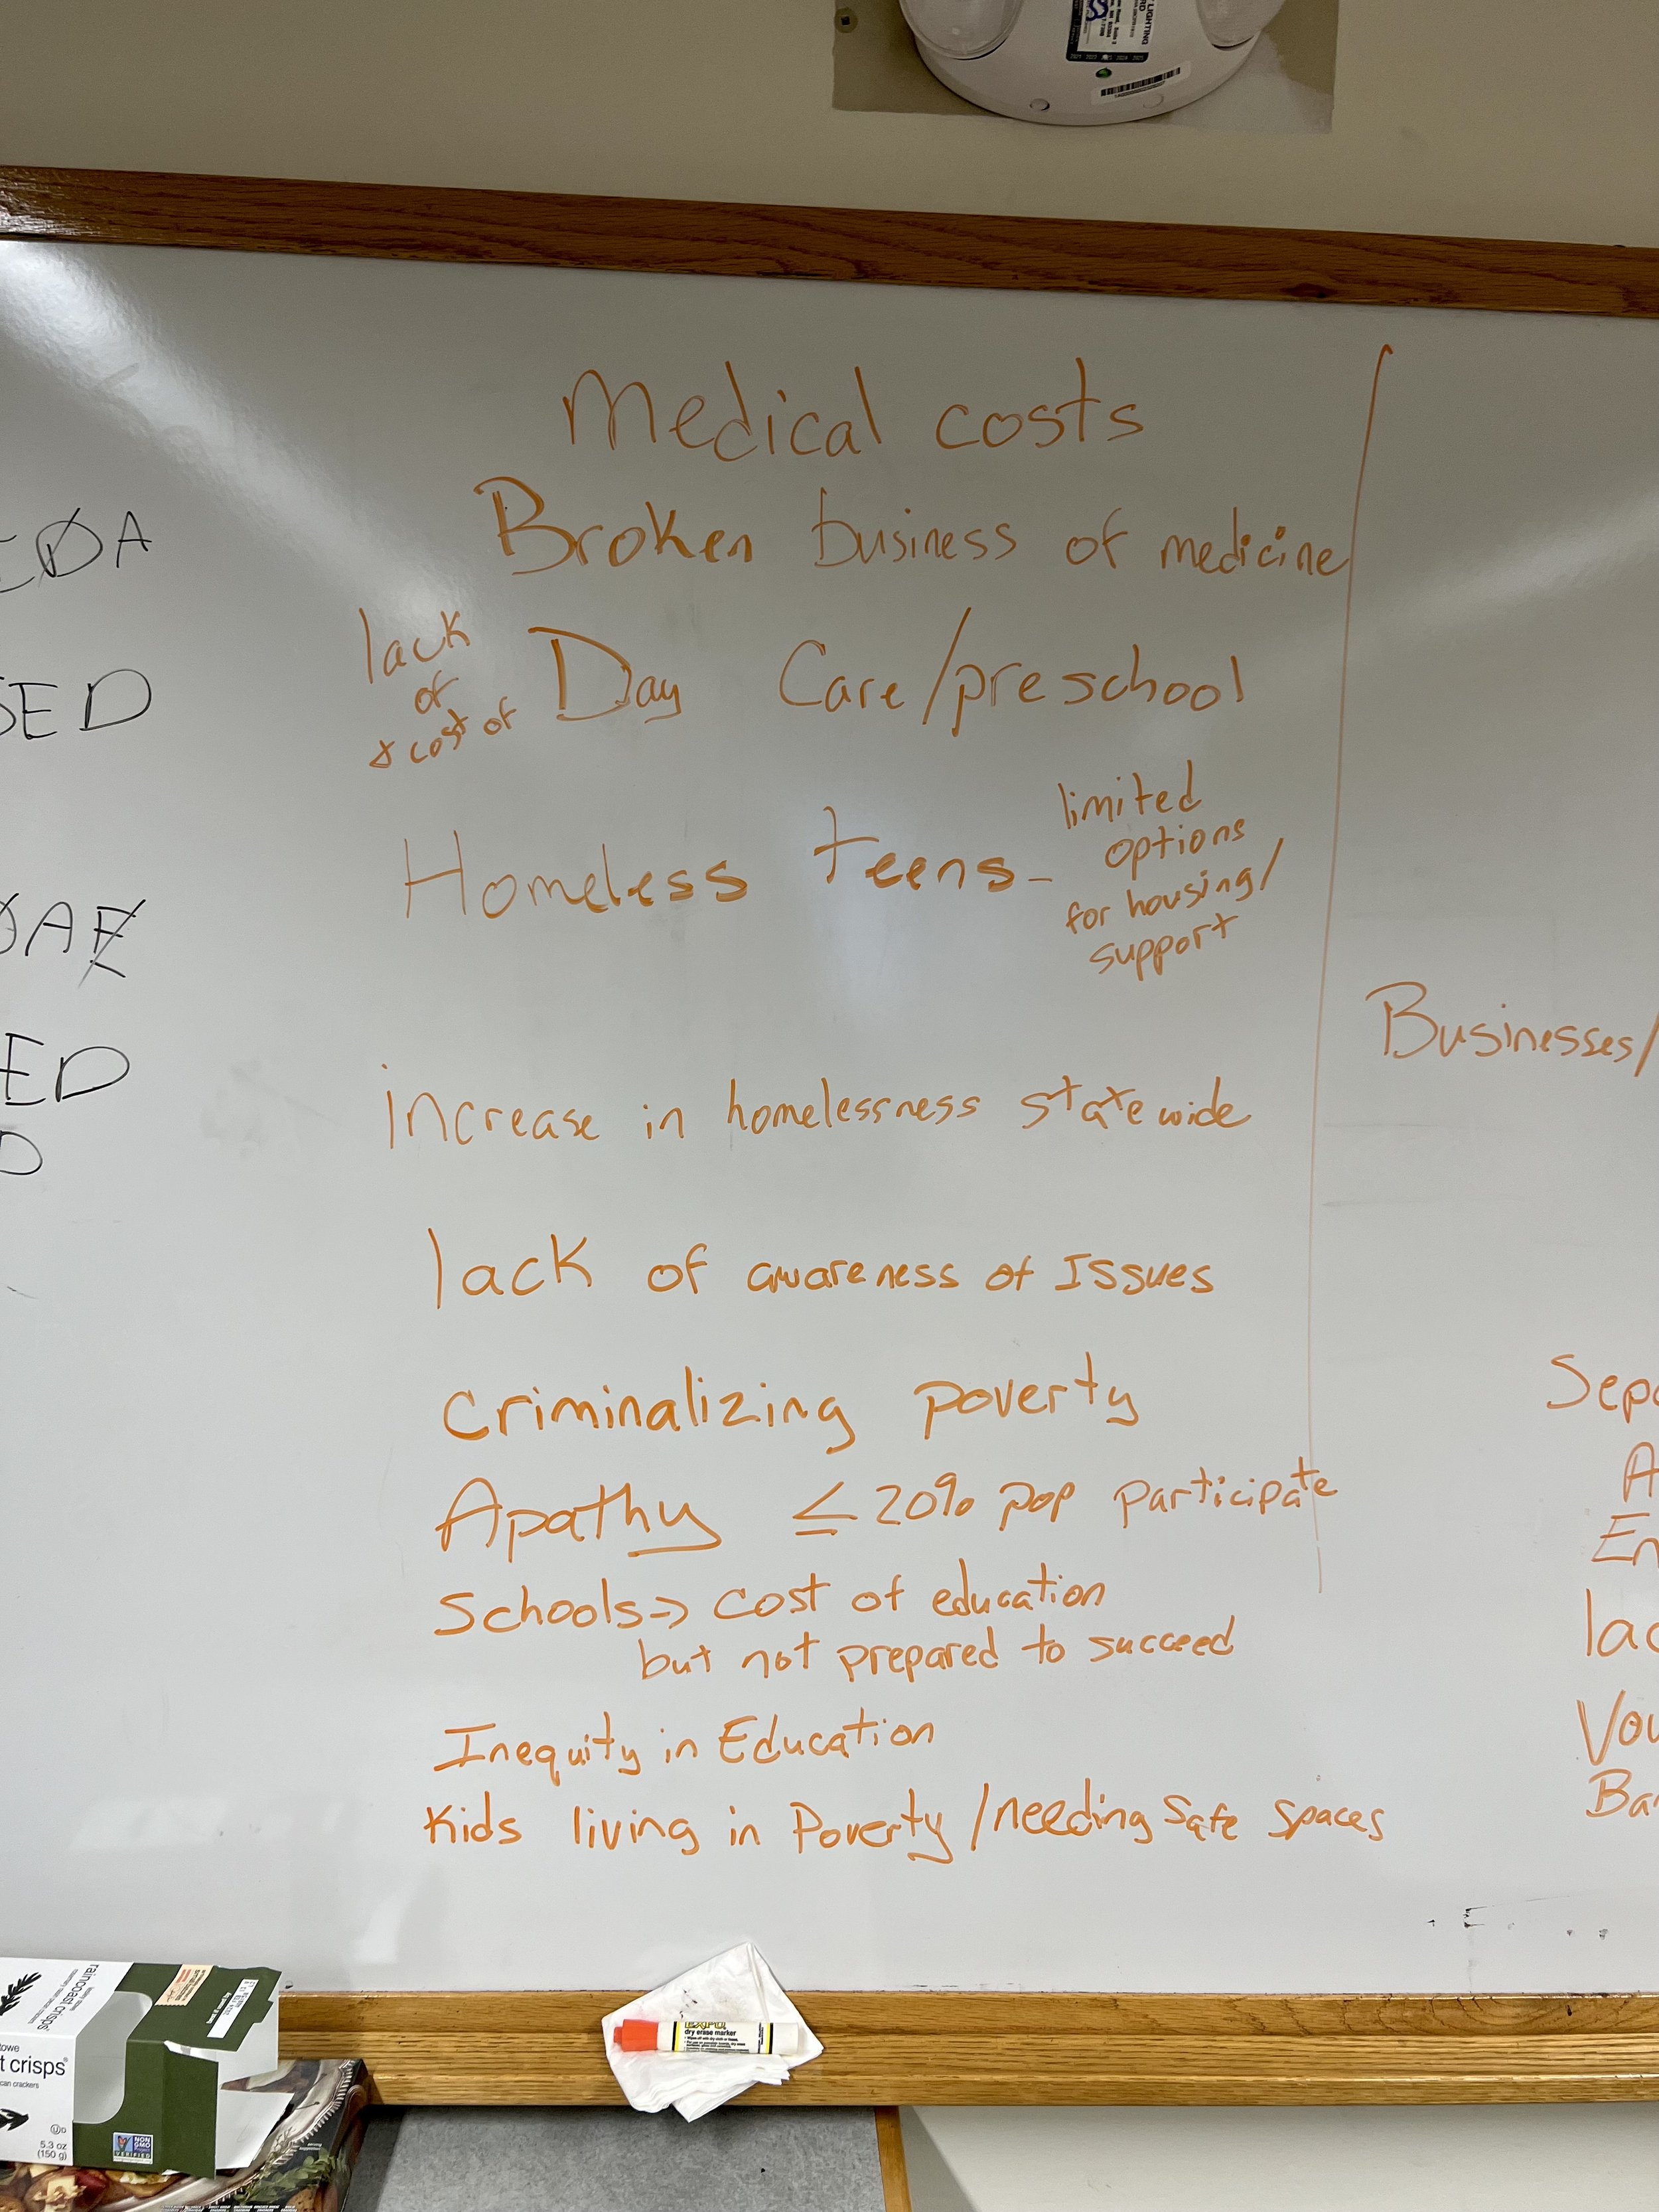 LIGHTING
Medical costs
Broken business of medicine
lack
of
& cost of
Day Care/preschool
Homeless teens-
limited
options
for housing/
support
increase in homelessness statewide
lack of awareness of Issues
Criminalizing poverty
Apathy ≤ 20% pop participate
Schools => cost of education
but not prepared to succeed
Inequity in Education
Kids living in Poverty/needing Safe Spaces
Businesses/
ED
D
raincoast crisps
crisps
5.3 oz
(150 g)
NON
GMO
VERIFIED
EXPO
dry erase marker